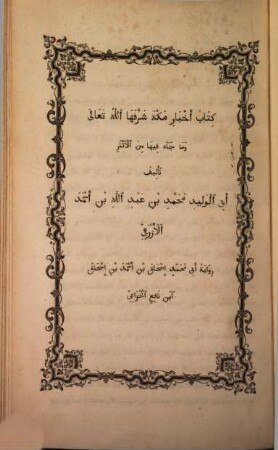 كتاب أخبار مكة شرفها الله تعالى
وما جاء فيها من الآثار
تأليف
أبي الوليد محمد بن عبد الله بن أحمد
الأزرقي
رواية أبي محمد إسحاق بن أحمد بن إسحاق
ابن نافع الخزاعي